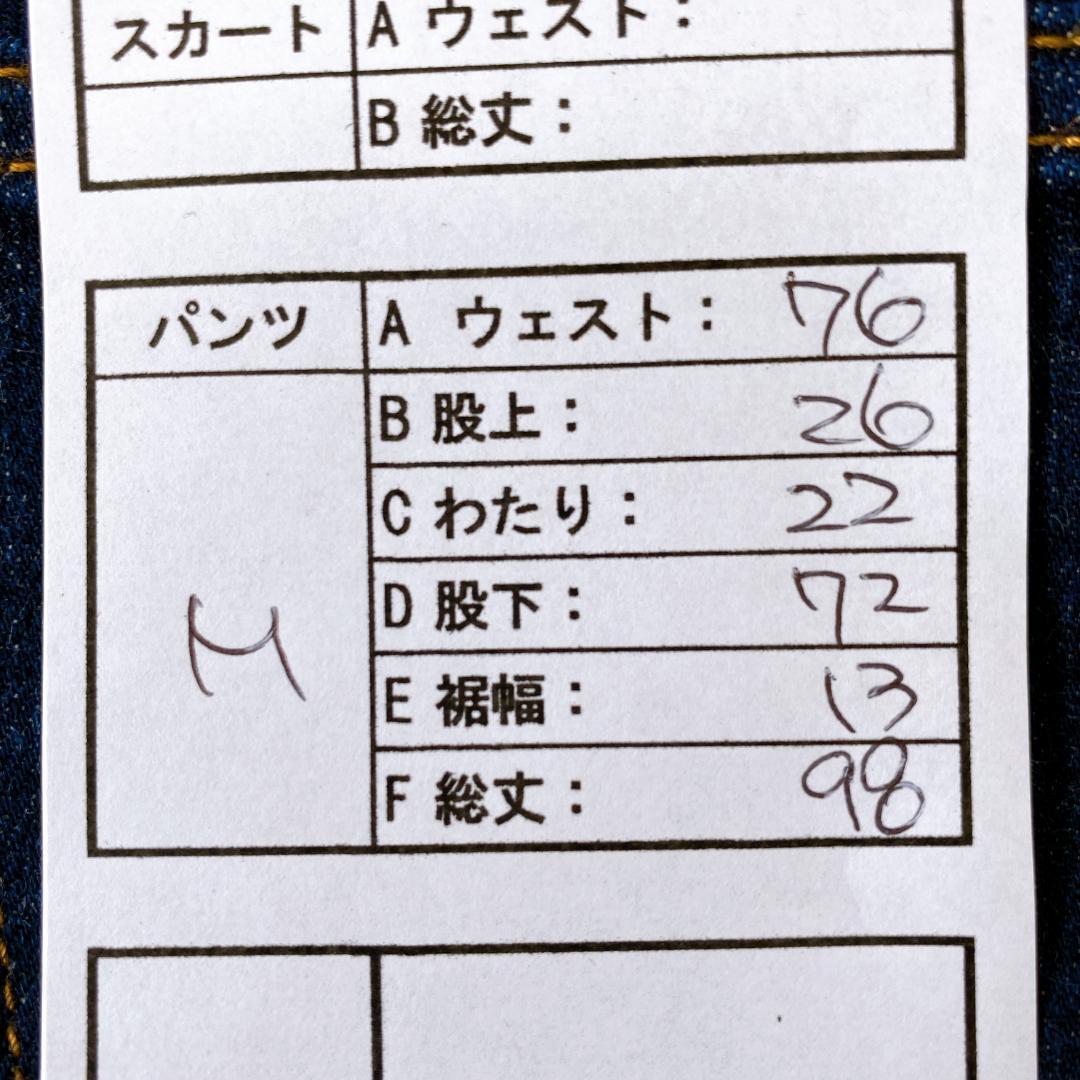 スカート A ウェスト：
B 総丈：
パンツ A ウェスト： 76
B 股上： 26
C わたり： 22
D 股下： 72
M
E 裾幅： 13
F 総丈： 98